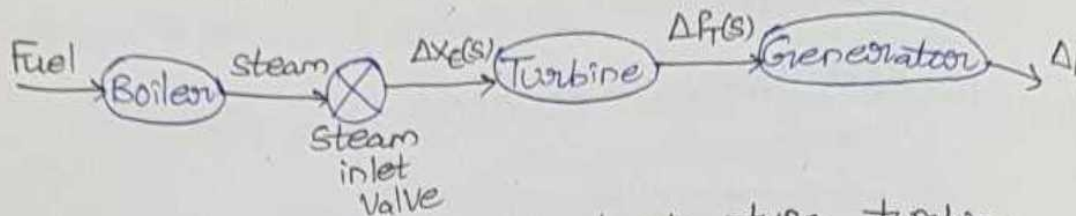 Fuel
Boiler
steam
steam
inlet
valve
ΔXE(s)
Turbine
ΔPT(s)
Generator